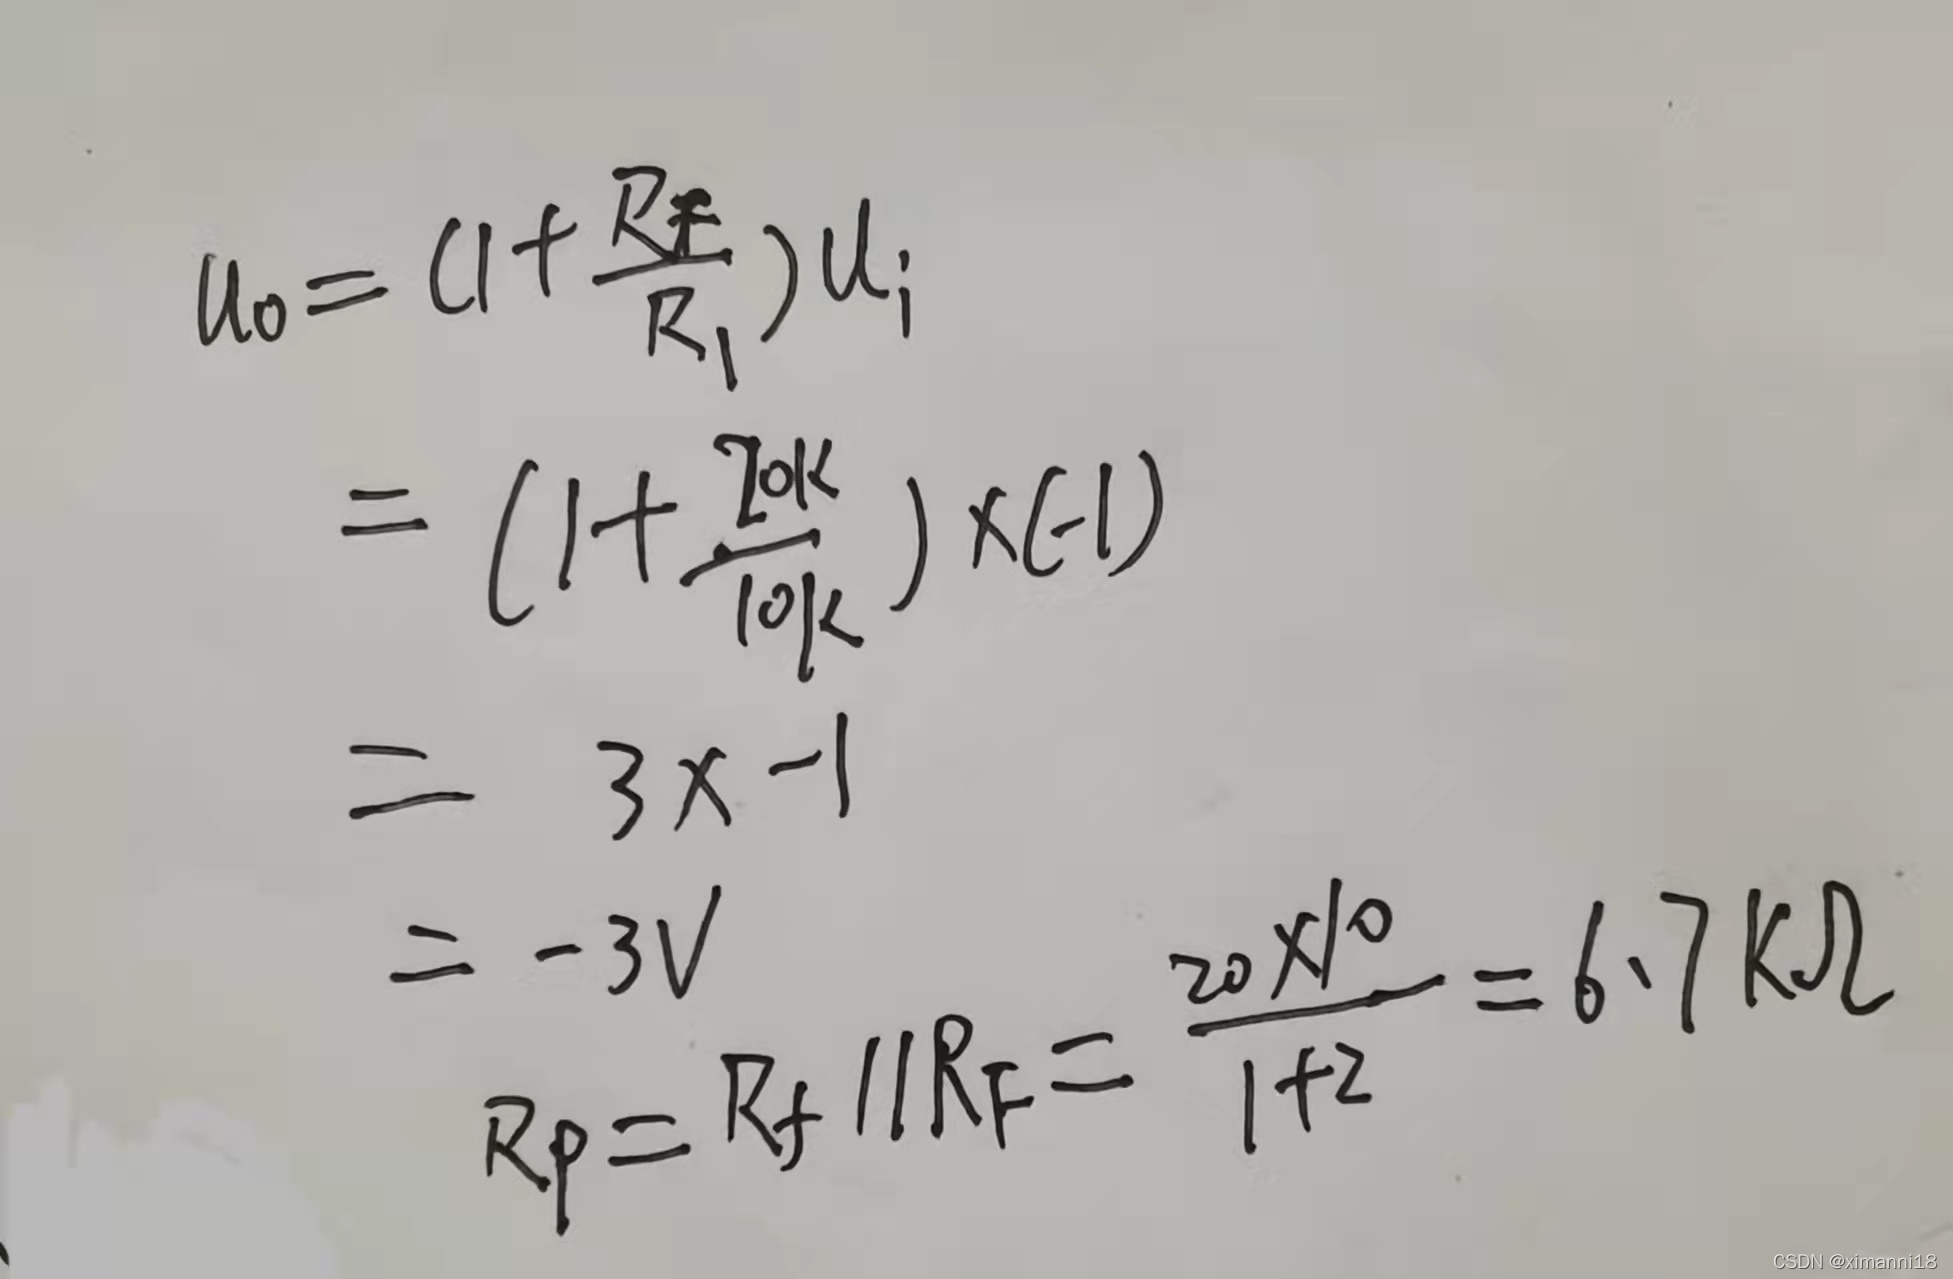 u₀ = (1 + R_F / R₁) uᵢ
= (1 + 20K / 10K) × (-1)
= 3 × -1
= -3V
Rp = Rf // R_F = 20×10 / 1+2 = 6.7 KΩ
CSDN @ximanni18